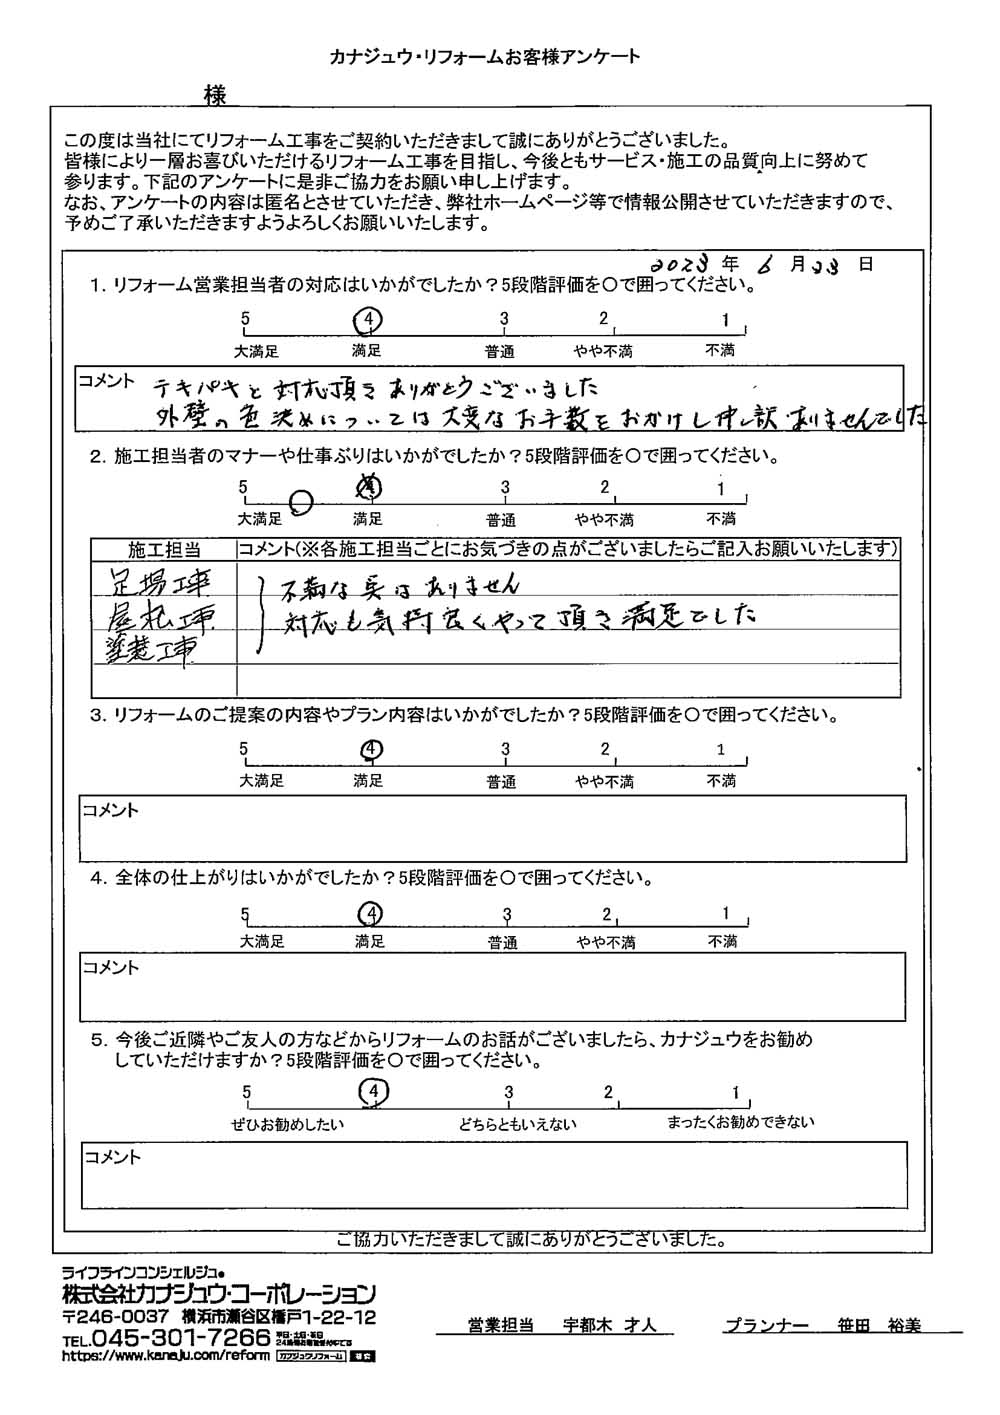 カナジュウ・リフォームお客様アンケート
様
この度は当社にてリフォーム工事をご契約いただきまして誠にありがとうございました。
皆様により一層お喜びいただけるリフォーム工事を目指し、今後ともサービス・施工の品質向上に努めて
参ります。下記のアンケートに是非ご協力をお願い申し上げます。
なお、アンケートの内容は匿名とさせていただき、弊社ホームページ等で情報公開させていただきますので、
予めご了承いただきますようよろしくお願いいたします。
2023 年 6 月 23 日
1. リフォーム営業担当者の対応はいかがでしたか？5段階評価を〇で囲ってください。
5 4 3 2 1
大満足 満足 普通 やや不満 不満
コメント テキパキと対応頂きありがとうございました
外壁の色決めについては大変なお手数をおかけし申し訳ありませんでした
2. 施工担当者のマナーや仕事ぶりはいかがでしたか？5段階評価を〇で囲ってください。
5 4 3 2 1
大満足 満足 普通 やや不満 不満
施工担当 コメント(※各施工担当ごとにお気づきの点がございましたらご記入お願いいたします)
足場工事 不満な点はありません
屋根工事 対応も気持良くやって頂き満足でした
塗装工事
3. リフォームのご提案の内容やプラン内容はいかがでしたか？5段階評価を〇で囲ってください。
5 4 3 2 1
大満足 満足 普通 やや不満 不満
コメント
4. 全体の仕上がりはいかがでしたか？5段階評価を〇で囲ってください。
5 4 3 2 1
大満足 満足 普通 やや不満 不満
コメント
5. 今後ご近隣やご友人の方などからリフォームのお話がございましたら、カナジュウをお勧め
していただけますか？5段階評価を〇で囲ってください。
5 4 3 2 1
ぜひお勧めしたい どちらともいえない まったくお勧めできない
コメント
ご協力いただきまして誠にありがとうございました。
ライフラインコンシェルジュ
株式会社カナジュウ・コーポレーション
〒246-0037 横浜市瀬谷区橋戸1-22-12
TEL.045-301-7266
https://www.kanaju.com/reform カナジュウリフォーム 検索
営業担当 宇都木 才人 プランナー 笹田 裕美